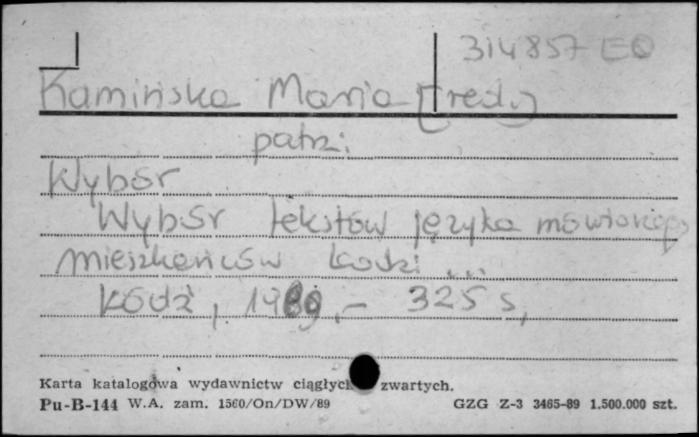 314857 EO
Kamińska Maria (red.)
patrz:
Wybór
Wybór tekstów języka mówionego
mieszkańców Łodzi ...
Łódź, 1989, - 325 s,
Karta katalogowa wydawnictw ciągłych zwartych.
Pu-B-144 W.A. zam. 1560/On/DW/89 GZG Z-3 3465-89 1.500.000 szt.